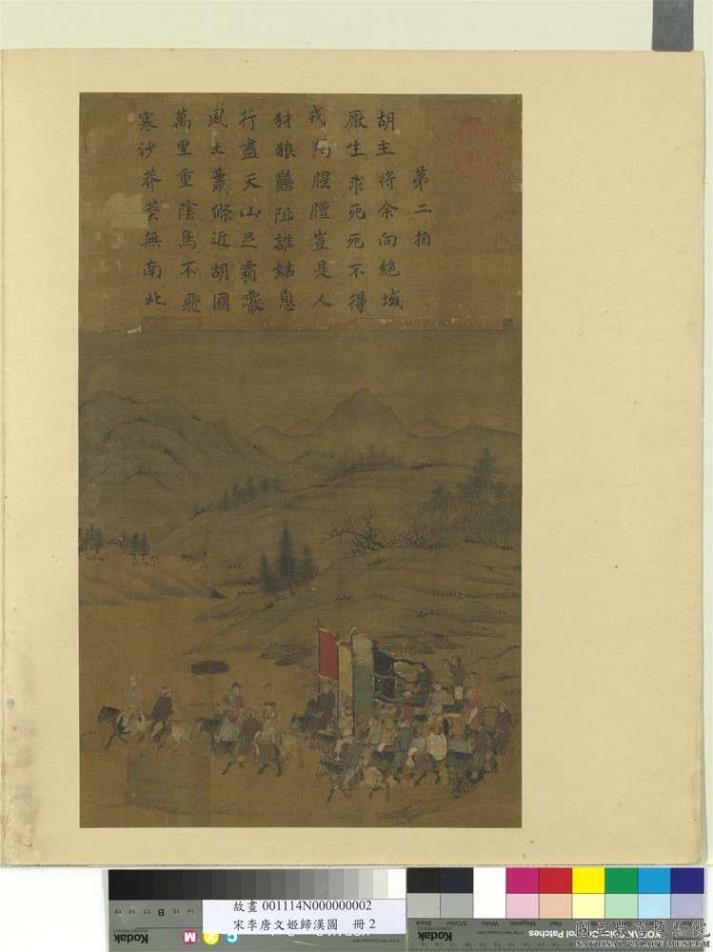 第二拍
胡主將余向絕域
厭生求死死不得
戎羯腥膻豈是人
犲狼難阻誰姑息
行盡天山足霜霰
風土蕭條近胡國
萬里重陰鳥不飛
寒沙莽莽無南北
故畫 001114N000000002
宋李唐文姬歸漢圖 冊 2
B
Kodak
M Y C
Black 3/Color White Magenta Red Yellow Green Cyan Blue
Kodak
KODAK Color Patches
國立故宮博物院
NATIONAL PALACE MUSEUM